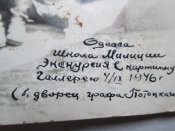 Одесса
Школа Милиции
Экскурсия в картинную
Галлерею 4/IX 1946 г
(б. дворец графа Потоцкаго